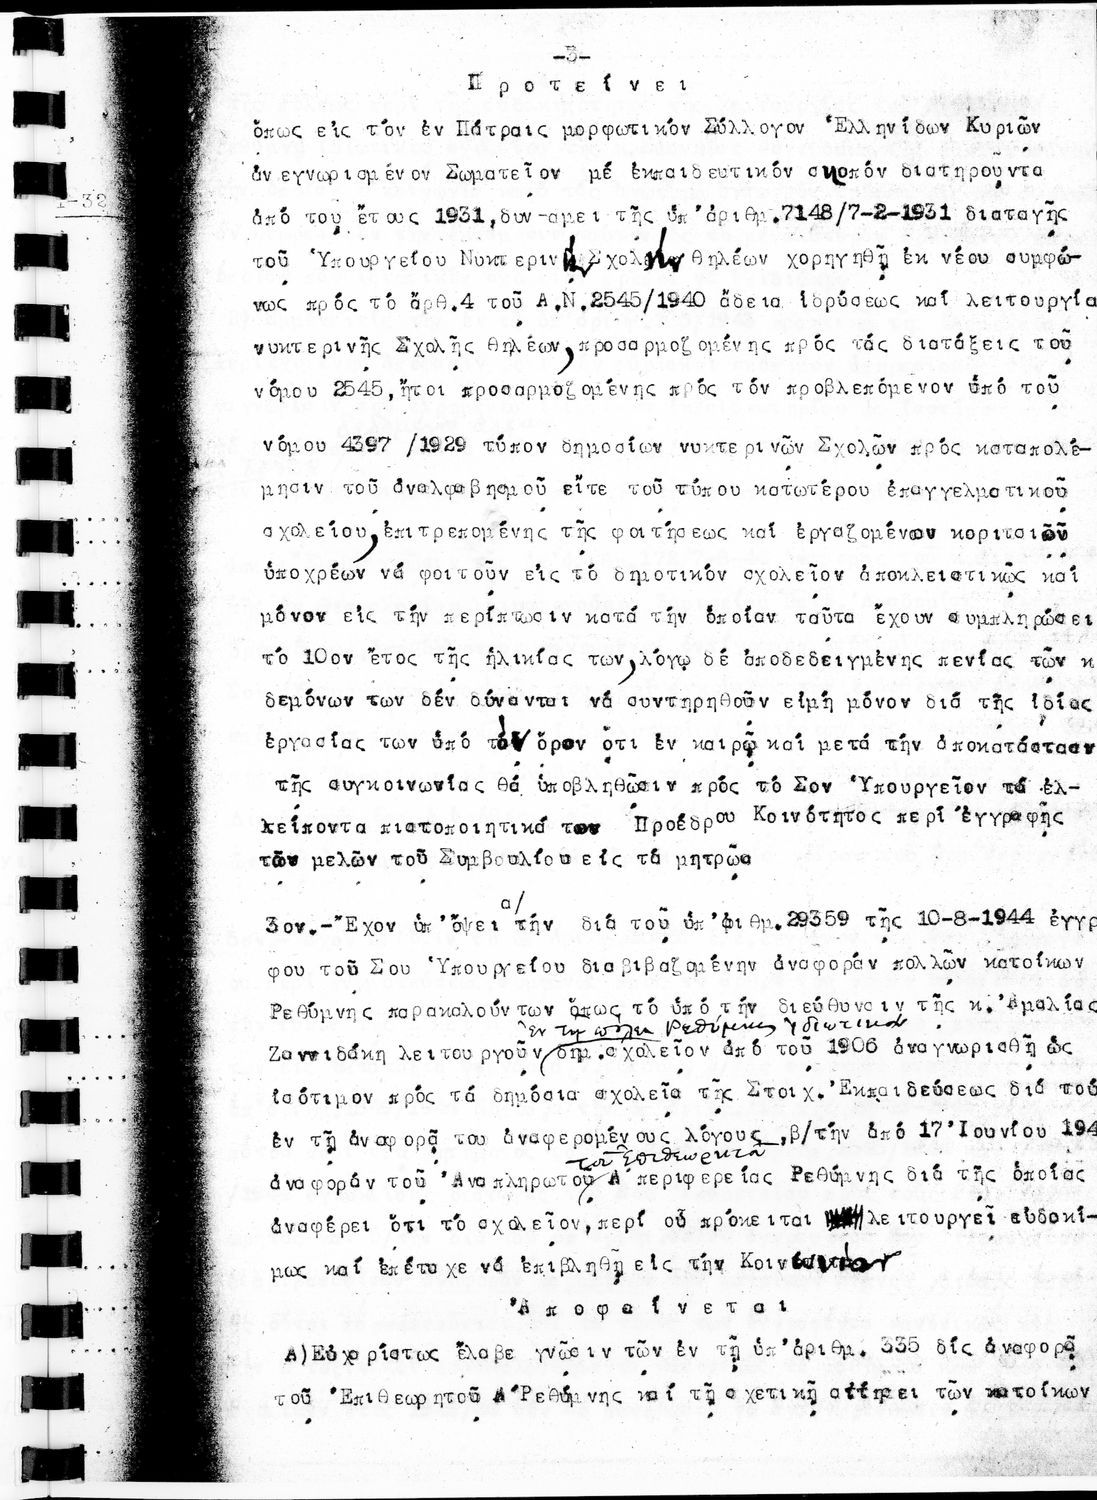 -3-
Π ρ ο τ ε ί ν ε ι
ὅπως εἰς τόν ἐν Πάτραις μορφωτικόν Σύλλογον Ἑλληνίδων Κυριῶν
ἀνεγνωρισμένον Σωματεῖον μέ ἐκπαιδευτικόν σκοπόν διατηροῦντα
ἀπό τοῦ ἔτους 1931,δυν-αμει τῆς ὑπ'ἀριθμ.7148/7-2-1931 διαταγῆς
τοῦ Ὑπουργείου Νυκτερινήν Σχολήν θηλέων χορηγηθῇ ἐκ νέου συμφώ-
νως πρός τό ἄρθ.4 τοῦ Α.Ν.2545/1940 ἄδεια ἱδρύσεως καί λειτουργία
νυκτερινῆς Σχολῆς θηλέων,προσαρμοζομένης πρός τάς διατάξεις τοῦ
νόμου 2545,ἤτοι προσαρμοζομένης πρός τόν προβλεπόμενον ὑπό τοῦ
νόμου 4397 /1929 τύπον δημοσίων νυκτερινῶν Σχολῶν πρός καταπολέ-
μησιν τοῦ ἀναλφαβησμοῦ εἴτε τοῦ τύπου κατωτέρου ἐπαγγελματικοῦ
σχολείου,ἐπιτρεπομένης τῆς φοιτήσεως καί ἐργαζομένων κοριτσιῶν
ὑποχρέων νά φοιτοῦν εἰς τό δημοτικόν σχολεῖον ἀποκλειστικῶς καί
μόνον εἰς τήν περίπτωσιν κατά τήν ὁποίαν ταῦτα ἔχουν συμπληρώσει
τό 10ον ἔτος τῆς ἡλικίας των,λόγῳ δέ ἀποδεδειγμένης πενίας τῶν κ
δεμόνων των δέν δύνανται νά συντηρηθοῦν εἰμή μόνον διά τῆς ἰδίας
ἐργασίας των ὑπό τόν ὅρον ὅτι ἐν καιρῷ καί μετά τήν ἀποκατάστασν
τῆς συγκοινωνίας θά ὑποβληθῶσιν πρός τό Σον Ὑπουργεῖον τά ἐλ-
λείποντα πιστοποιητικά των Προέδρου Κοινότητος περί ἐγγραφῆς
τῶν μελῶν τοῦ Συμβουλίου εἰς τά μητρῶα
α/
3ον.-Ἔχον ὑπ'ὄψει τήν διά τοῦ ὑπ'ἀριθμ.29359 τῆς 10-8-1944 ἐγγρ
φου τοῦ Σου Ὑπουργείου διαβιβαζομένην ἀναφοράν πολλῶν κατοίκων
Ρεθύμνης παρακαλούντων ὅπως τό ὑπό τήν διεύθυνσιν τῆς κ.Ἀμαλίας
ἐν τῇ πόλει Ρεθύμνης ἰδιωτικόν
Ζαννιδάκη λειτουργοῦν δημ.σχολεῖον ἀπό τοῦ 1906 ἀναγνωρισθῇ ὡς
ἰσότιμον πρός τά δημόσια σχολεῖα τῆς Στοιχ.Ἐκπαιδεύσεως διά τού
ἐν τῇ ἀναφορᾷ του ἀναφερομένους λόγους ,β/τήν ἀπό 17 Ἰουνίου 194
τοῦ Ἐπιθεωρητοῦ
ἀναφοράν τοῦ Ἀναπληρωτοῦ Α περιφερείας Ρεθύμνης διά τῆς ὁποίας
ἀναφέρει ὅτι τό σχολεῖον,περί οὗ πρόκειται λειτουργεῖ εὐδοκί-
μως καί ἐπέτυχε νά ἐπιβληθῇ εἰς τήν Κοινωνίαν
Ἀ π ο φ α ί ν ε τ α ι
Α)Εὐχαρίστως ἔλαβε γνῶσιν τῶν ἐν τῇ ὑπ'ἀριθμ. 335 δίς ἀναφορᾷ
τοῦ Ἐπιθεωρητοῦ Α'Ρεθύμνης καί τῇ σχετικῇ αἰτήσει τῶν κατοίκων